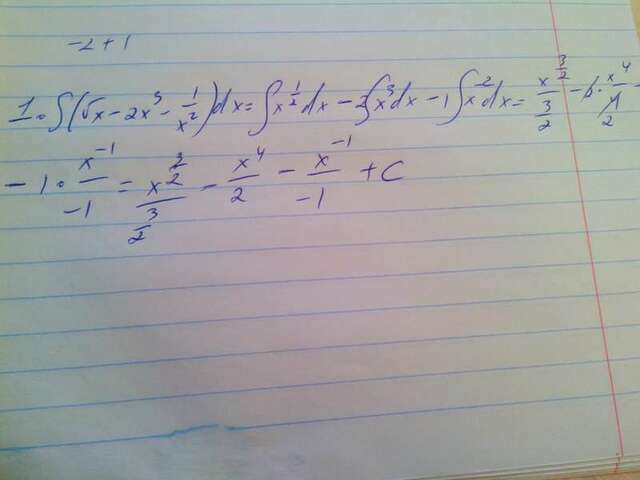 -2+1
1. ∫(√x - 2x³ - 1/x²)dx = ∫x^(1/2)dx - 2∫x³dx - 1∫x^(-2)dx = x^(3/2)/(3/2) - 2·x⁴/4 -
- 1 · x^(-1)/-1 = x^(3/2)/(3/2) - x⁴/2 - x^(-1)/-1 + C